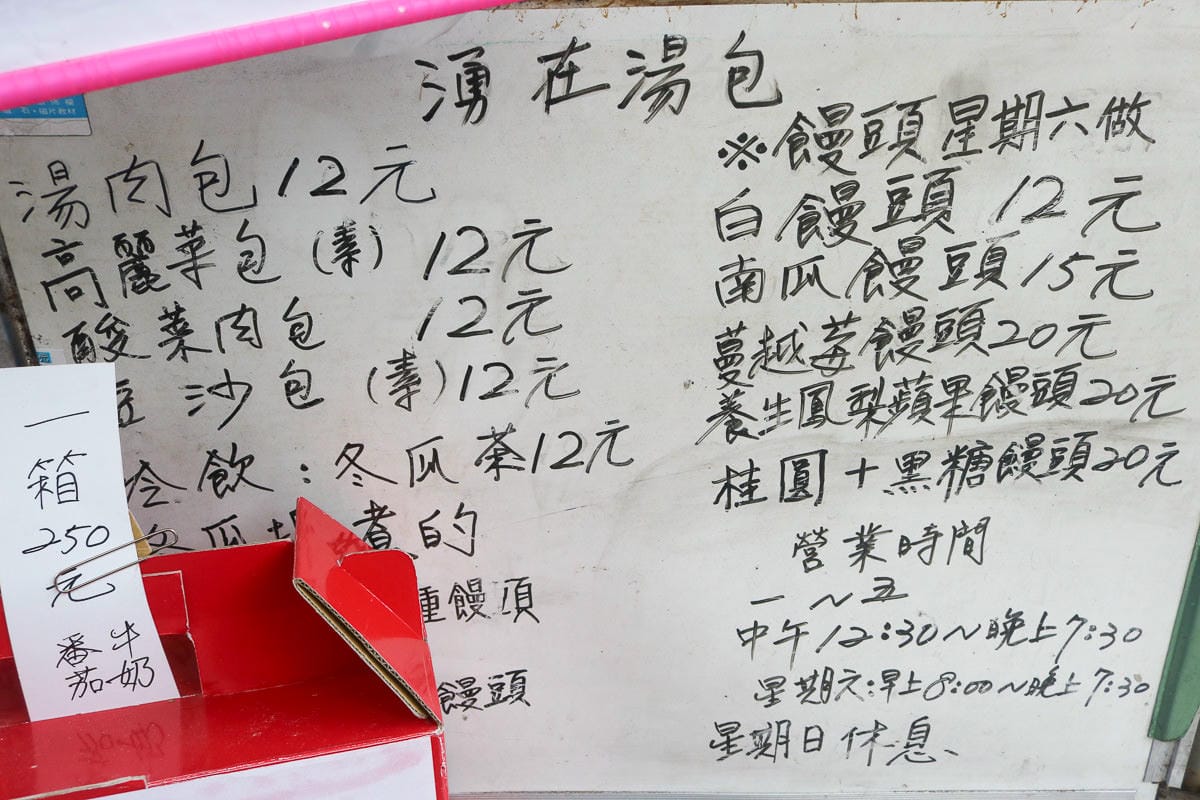 湧在湯包
湯肉包12元
高麗菜包(素) 12元
酸菜肉包 12元
沙包(素)12元
冷飲:冬瓜茶12元
瓜 煮的
種饅項
饅頭
※饅頭星期六做
白饅頭 12元
南瓜饅頭15元
蔓越莓饅頭20元
養生鳳梨蘋果饅頭20元
桂圓+黑糖饅頭20元
營業時間
一~五
中午12:30~晚上7:30
星期六:早上8:00~晚上7:30
星期日休息、
一箱
250
元
牛奶
番茄